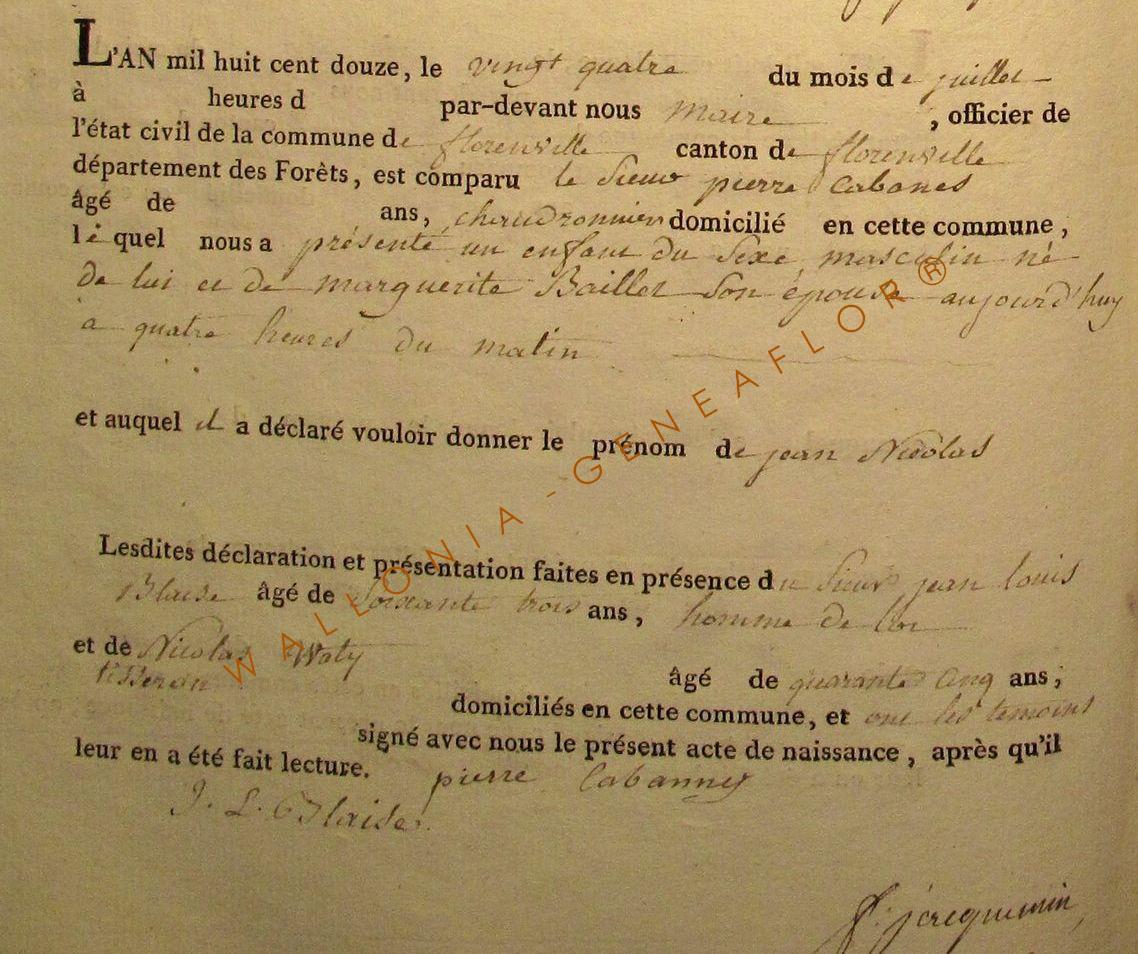 L'AN mil huit cent douze, le vingt quatre du mois de juillet
à heures d par-devant nous maire , officier de
l'état civil de la commune de florenville canton de florenville
département des Forêts, est comparu le Sieur pierre Cabanes
âgé de ans, chaudronnier domicilié en cette commune,
le quel nous a présenté un enfant du Sexe masculin né
de lui et de marguerite Baillet Son épouse aujourd'huy
a quatre heures du matin
et auquel il a déclaré vouloir donner le prénom de jean Nicolas
Lesdites déclaration et présentation faites en présence du Sieur jean louis
Blaise âgé de Soixante trois ans, homme de loi
et de Nicolas Waty âgé de quarante Cinq ans,
tisseran domiciliés en cette commune, et ont les temoins
signé avec nous le présent acte de naissance, après qu'il
leur en a été fait lecture. pierre Cabannes
J. L. Blaise
jacquemin
WALLONIA-GENEAFLOR®